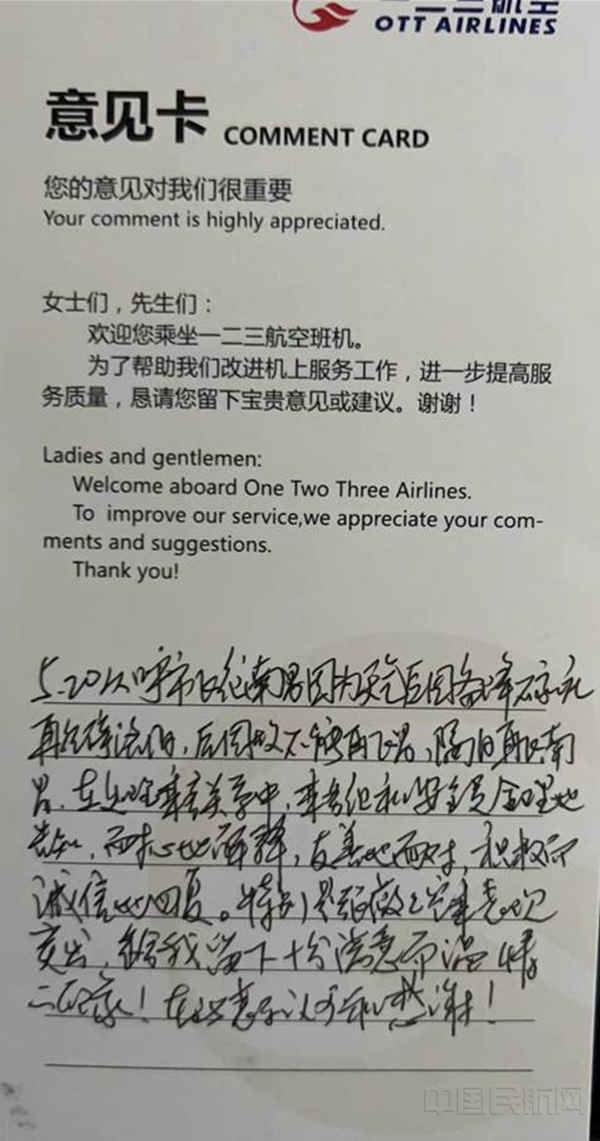 一二三航空
OTT AIRLINES
意见卡 COMMENT CARD
您的意见对我们很重要
Your comment is highly appreciated.
女士们，先生们：
欢迎您乘坐一二三航空班机。
为了帮助我们改进机上服务工作，进一步提高服
务质量，恳请您留下宝贵意见或建议。谢谢！
Ladies and gentlemen:
Welcome aboard One Two Three Airlines.
To improve our service,we appreciate your com-
ments and suggestions.
Thank you!
5.20从呼市飞往南昌因为天气原因备降
后因故不能再飞昌，隔日再飞南
昌，在处理乘客关系中，乘务组和安全员合理地
告知，耐心地解释，友善地面对，积极而
诚信地回复。特别是
突出，给我留下十分满意而温情
！在此表示认可和感谢！
中国民航网